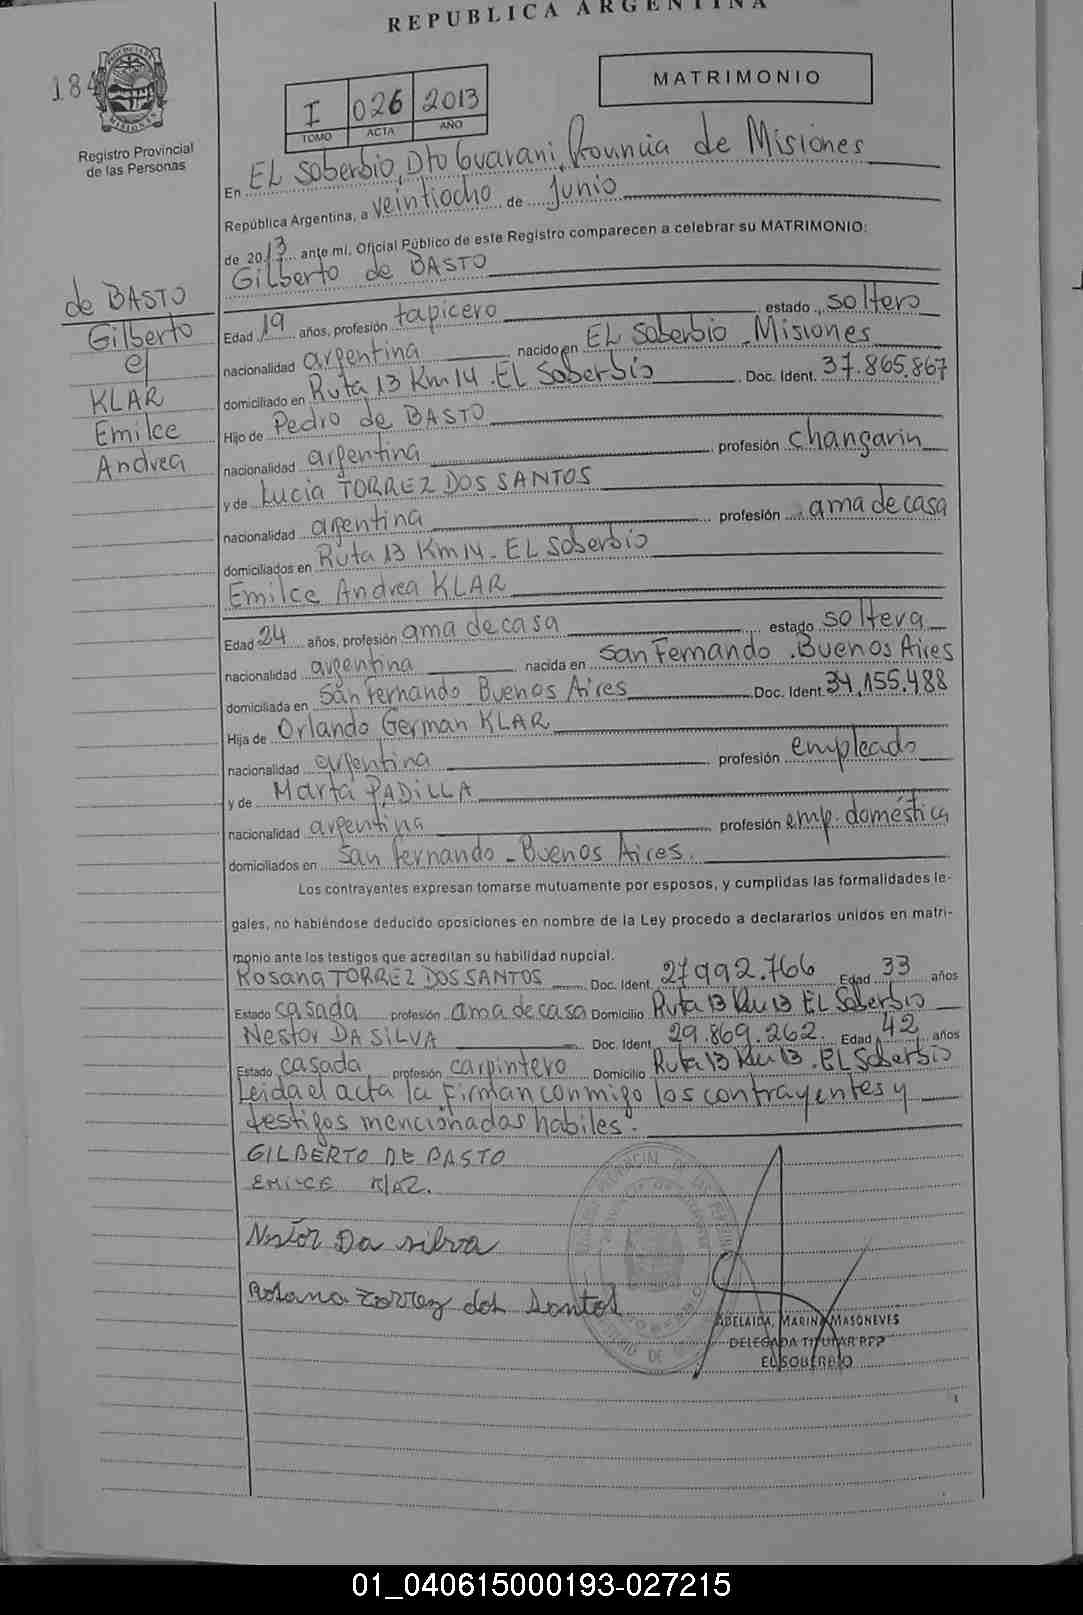 REPUBLICA ARGENTINA
184
Registro Provincial
de las Personas
MATRIMONIO
I 026 2013
TOMO ACTA AÑO
En EL Soberbio, Dto Guarani, Provincia de Misiones
República Argentina, a veintiocho de Junio
de 2013 ante mí, Oficial Público de este Registro comparecen a celebrar su MATRIMONIO:
Gilberto de BASTO
de BASTO
Gilberto
c/
KLAR
Emilce
Andrea
Edad 19 años, profesión tapicero estado soltero
nacionalidad argentina nacido en EL Soberbio - Misiones
domiciliado en Ruta 13 Km 14 . EL Soberbio Doc. Ident. 37.865.867
Hijo de Pedro de BASTO
nacionalidad argentina profesión changarin
y de Lucia TORREZ DOS SANTOS
nacionalidad argentina profesión ama de casa
domiciliados en Ruta 13 Km 14 - EL Soberbio
Emilce Andrea KLAR
Edad 24 años, profesión ama de casa estado soltera
nacionalidad argentina nacida en San Fernando . Buenos Aires
domiciliada en San Fernando Buenos Aires Doc. Ident. 34.155.488
Hija de Orlando German KLAR
nacionalidad argentina profesión empleado
y de Marta PADILLA
nacionalidad argentina profesión emp. doméstica
domiciliados en San Fernando - Buenos Aires.
Los contrayentes expresan tomarse mutuamente por esposos, y cumplidas las formalidades le-
gales, no habiéndose deducido oposiciones en nombre de la Ley procedo a declararlos unidos en matri-
monio ante los testigos que acreditan su habilidad nupcial.
Rosana TORREZ DOS SANTOS Doc. Ident. 27992.766 Edad 33 años
Estado casada profesión ama de casa Domicilio Ruta 13 Km 13 EL Soberbio
Nestor DA SILVA Doc. Ident. 29.869.262. Edad 42 años
Estado casada profesión carpintero Domicilio Ruta 13 Km 13 . EL Soberbio
Leida el acta la Firman conmigo los contrayentes y
testigos mencionadas habiles.
GILBERTO DE BASTO
EMILCE KLAR.
Nestor Da silva
Rosana Torrez dos Santos
ADELAIDA, MARINA MASONEVES
DELEGADA TITULAR RPP
EL SOBERBIO
01_040615000193-027215